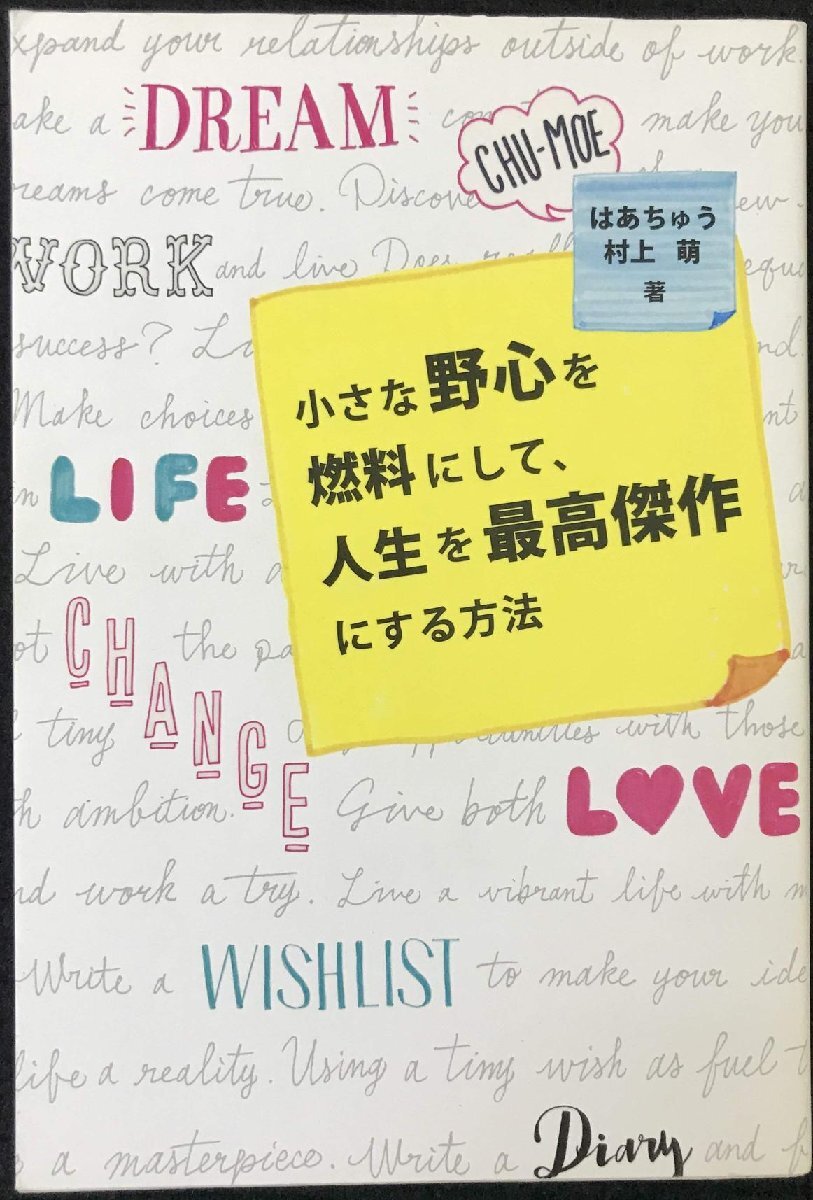 xpand your relationships outside of work.
ake a DREAM come make you
CHU-MOE
reams come true. Discove ew.
はあちゅう
村上 萌
著
WORK and live Does really equ
success? Li nd.
小さな野心を
Make choices nt
燃料にして、
n LIFE a
人生を最高傑作
Live with a
にする方法
ot CHANGE the pa a
l tiny opportunities with those
h ambition. Give both LOVE
nd work a try. Live a vibrant life with m
Write a WISHLIST to make your ide
life a reality. Using a tiny wish as fuel t
a masterpiece. Write a Diary and f